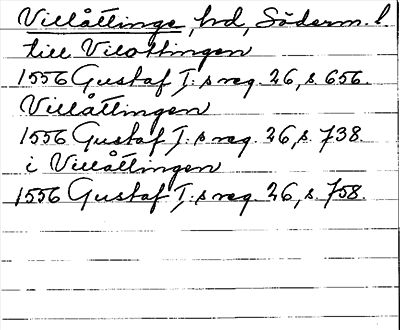 Villåttinge, hd, Söderm. l.
till Vilottingen
1556 Gustaf I:s reg. 26, s. 656.
Villåttingen
1556 Gustaf I:s reg. 26, s. 738.
i Villåttingen
1556 Gustaf I:s reg. 26, s. 758.